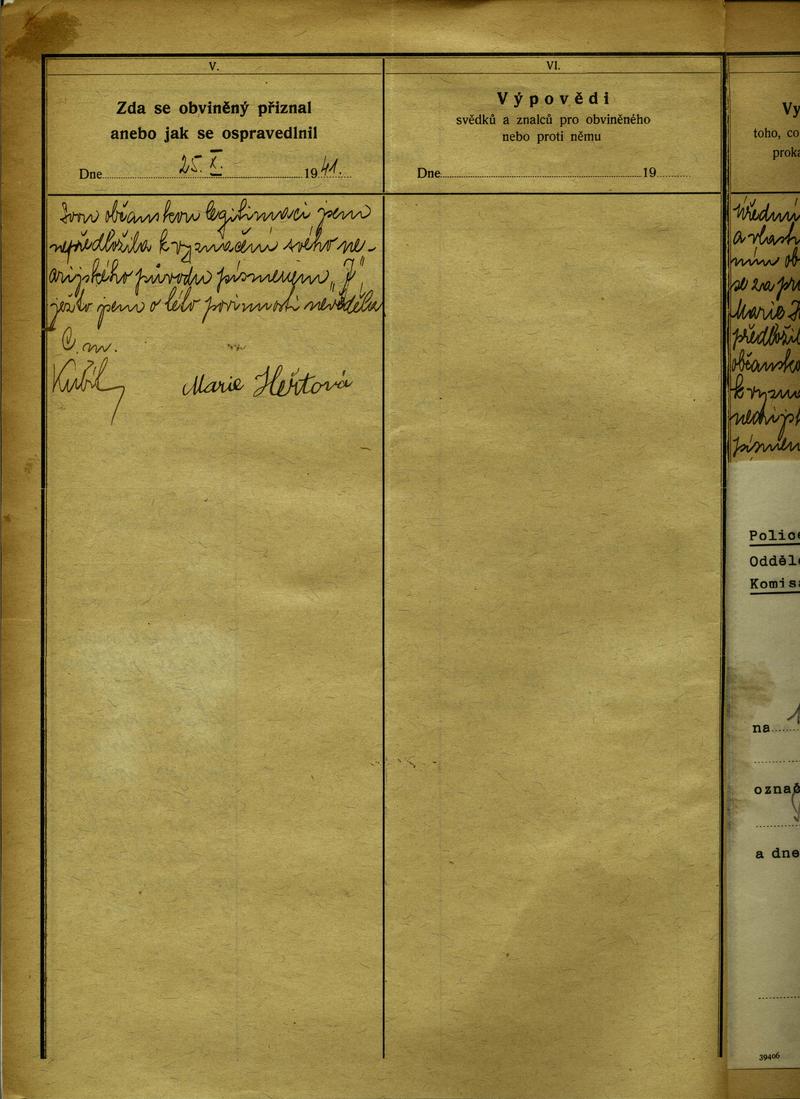 V.
Zda se obviněný přiznal
anebo jak se ospravedlnil
Dne 25. X. 1941.
Svou občanskou legitimaci jsem
nepředložila k vyznačení svého ne-
árijského původu písmenem "J"
jelikož jsem o této povinnosti nevěděla.
Marie Hertová
VI.
Výpovědi
svědků a znalců pro obviněného
nebo proti němu
Dne 19
Vy
toho, co
proká
Úřední
a vlast
se za
Marie
předlož
občansko
k vyzna
neárijs
písmen
Police
Odděl
Komisa
na
označ
a dne
39406